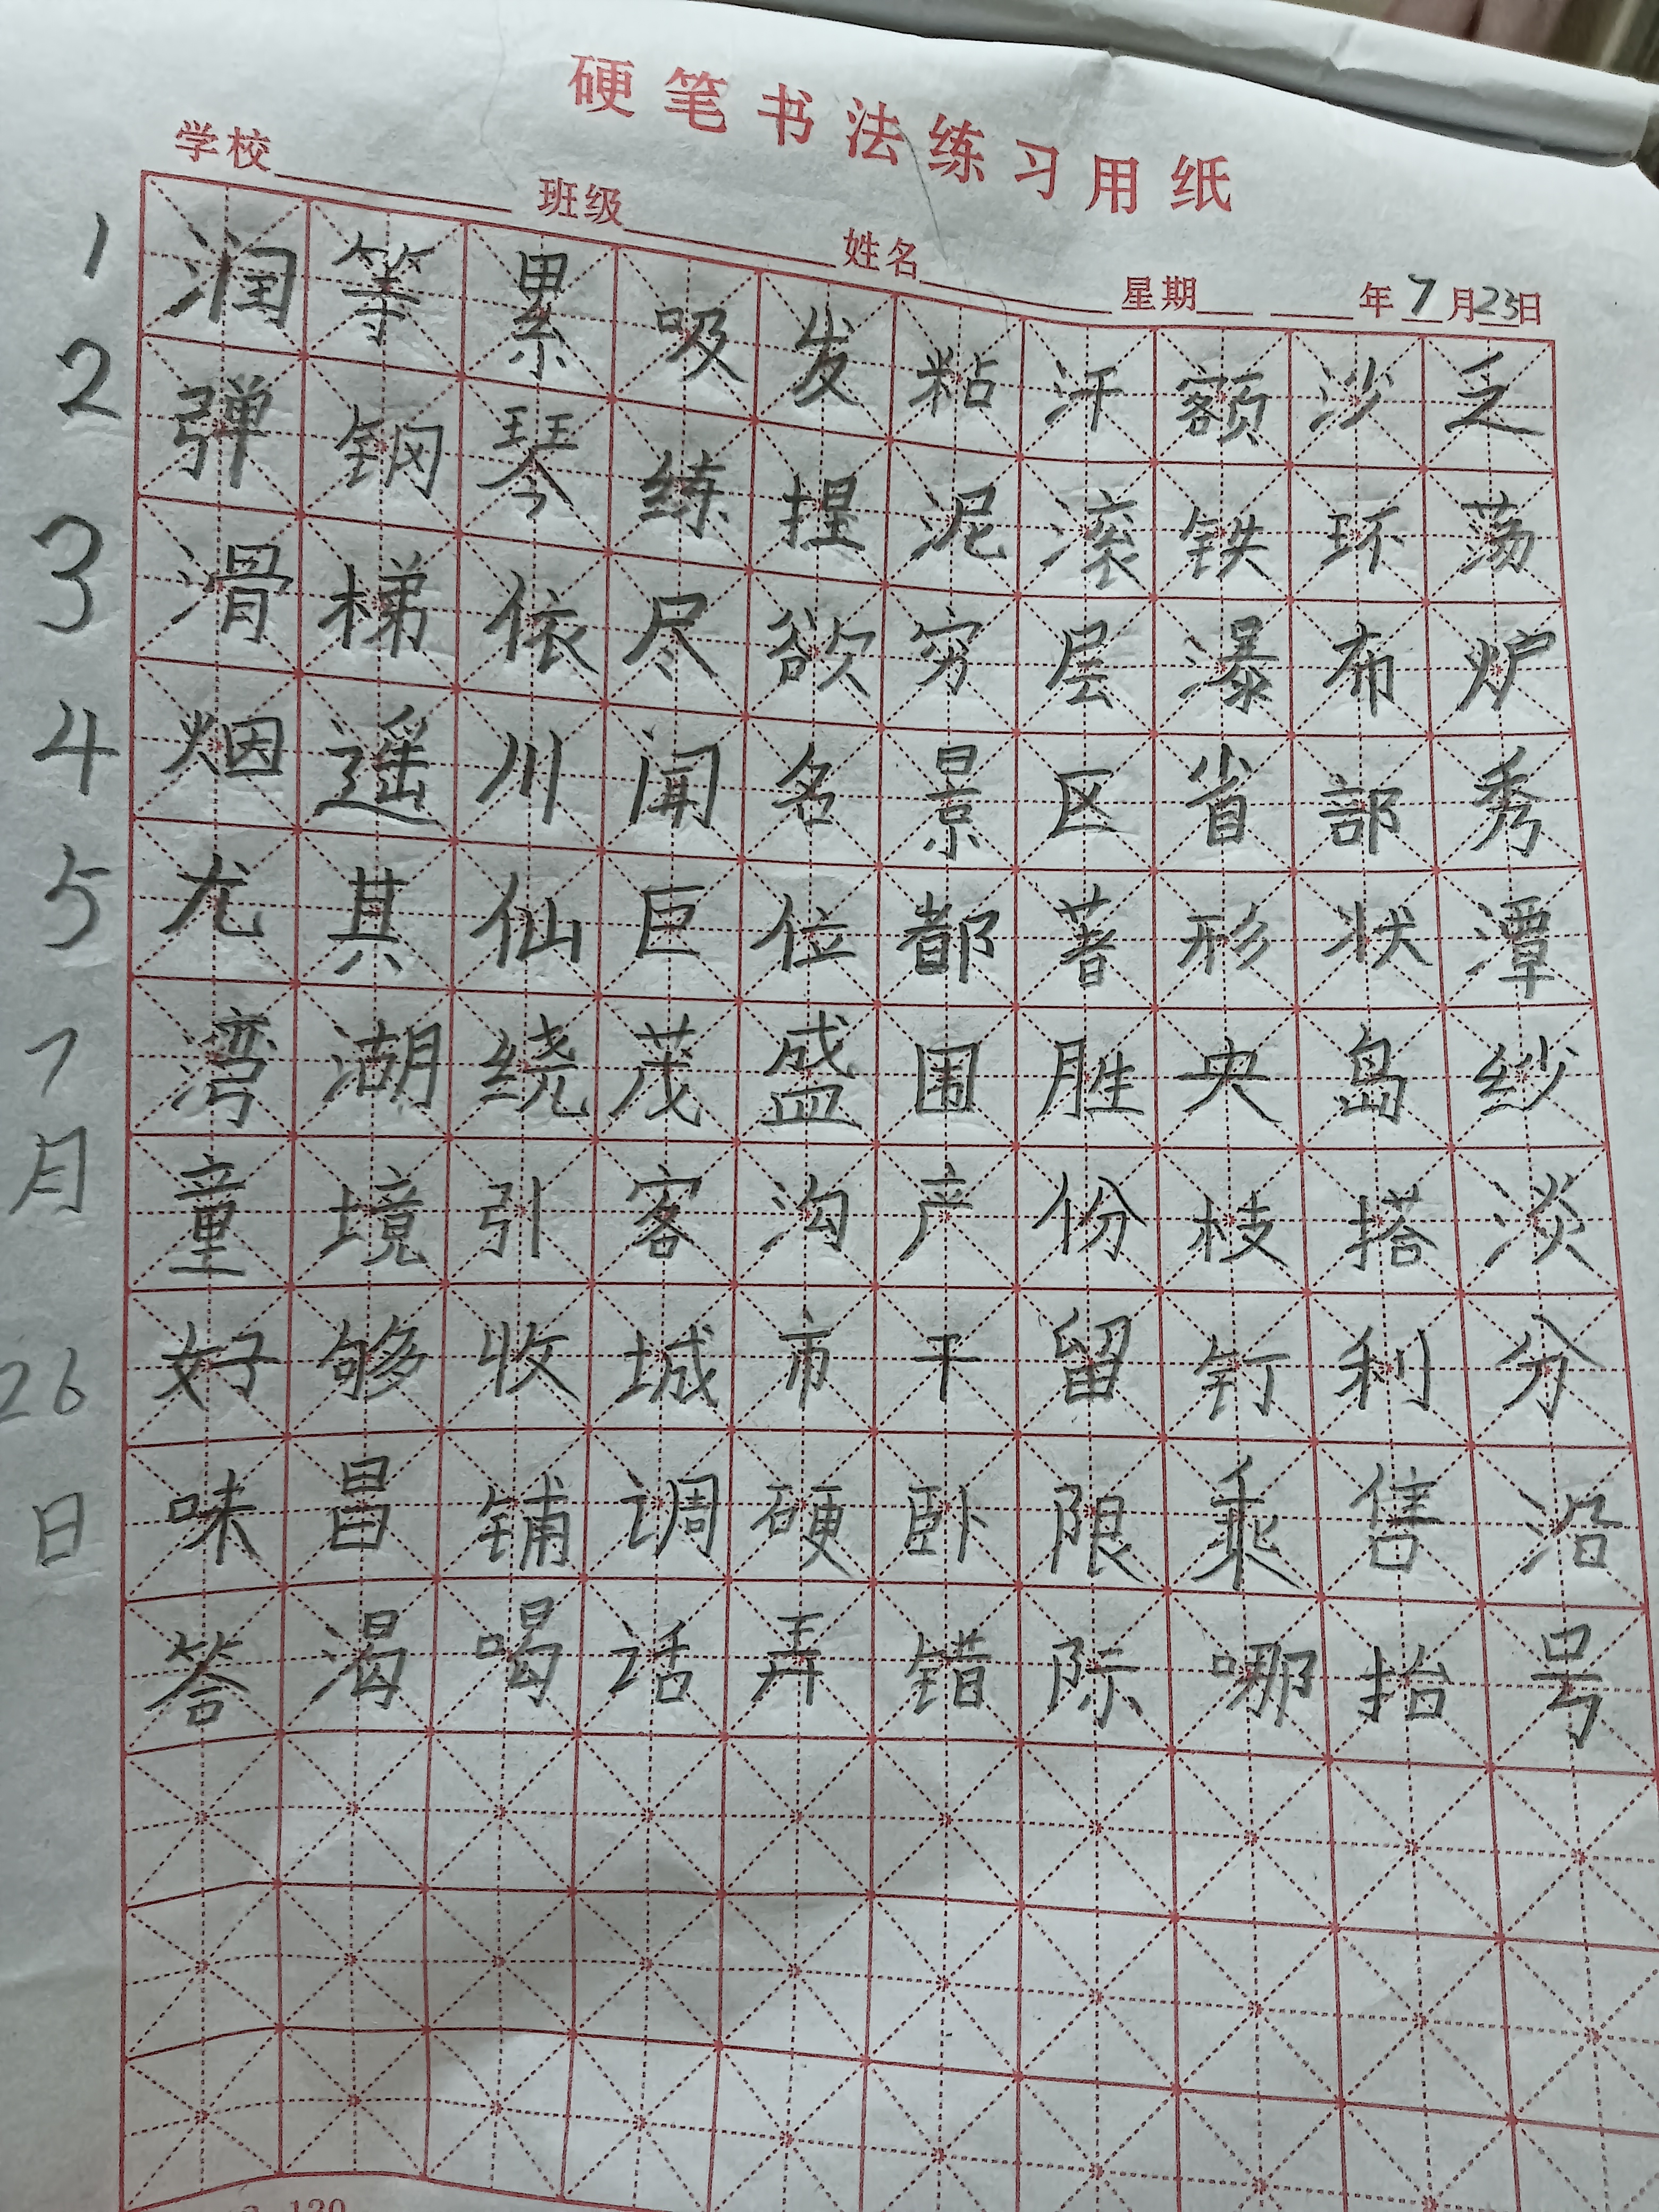 硬笔书法练习用纸
学校 班级 姓名 星期 年7月23日
1 润等累吸发粘汗额沙乏
2 弹钢琴练捏泥滚铁环荡
3 滑梯依尽欲穷层瀑布炉
4 烟遥川闻名景区省部秀
5 尤其仙巨位都著形状潭
7 湾湖绕茂盛围胜央岛纱
月 童境引客沟产份枝搭淡
26 好够收城市干留钉利分
日 味昌铺调硬卧限乘售沿
答渴喝话弄错际哪抬号